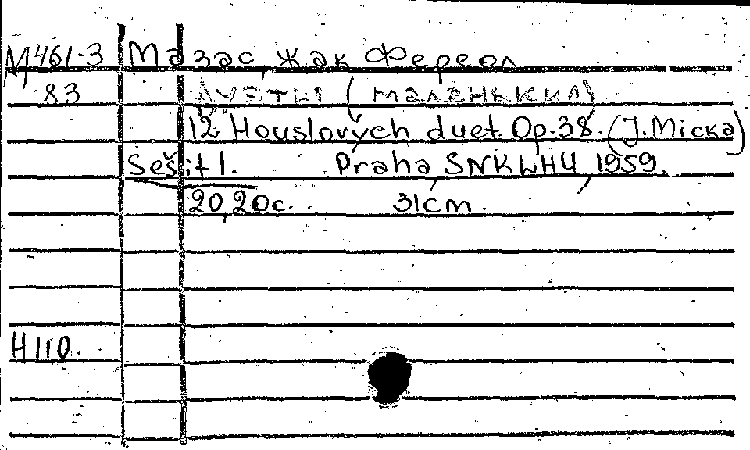 М461-3 Мазас, Жак Фереол
83 Дуэты (маленькия)
12 Houslových duet. Op.38. (J.Micka)
Sešit 1. Praha, SNKLHU, 1959.
20,20с. 31cm.
Н110.